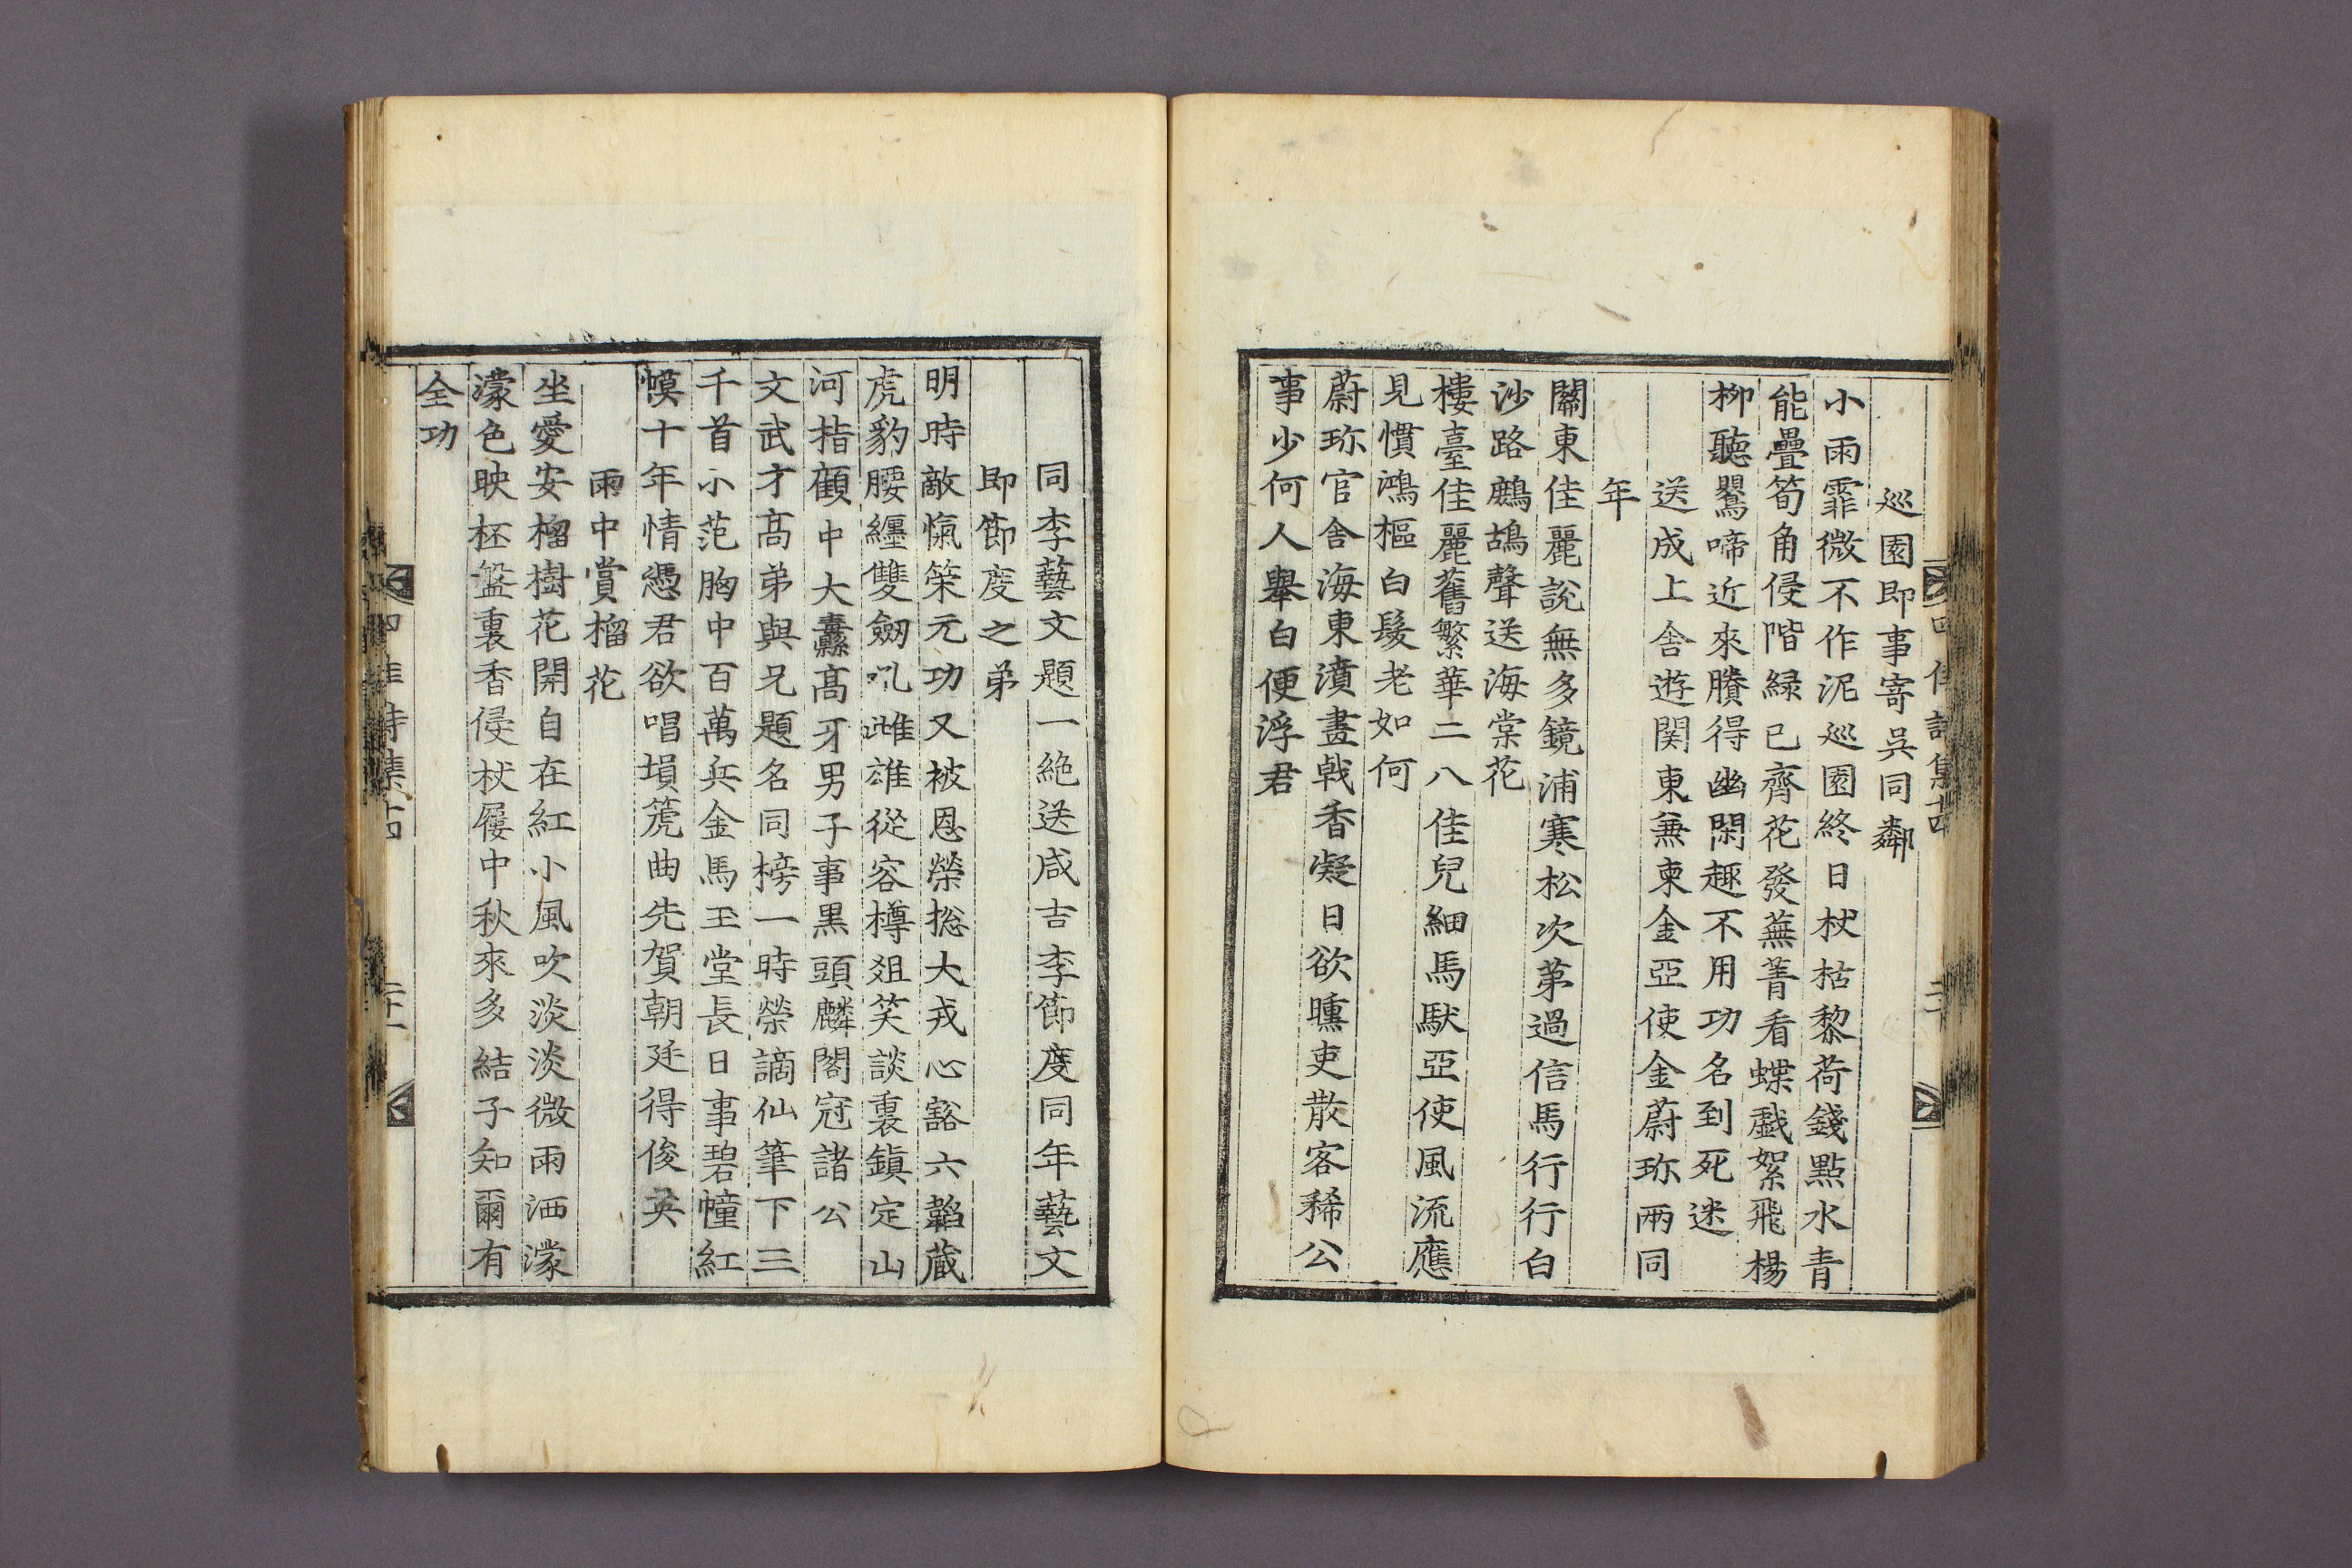 巡園即事寄吳同鄰
小雨霏微不作泥巡園終日杖枯黎荷錢點水青
能疊筍角侵階緑已齊花發蕪菁看蝶戱絮飛楊
柳聽鸎啼近來賸得幽閑趣不用功名到死迷
送成上舍遊関東兼柬金亞使金蔚珎兩同
年
關東佳麗說無多鏡浦寒松次苐過信馬行行白
沙路鷓鴣聲送海棠花
樓臺佳麗舊繁華二八佳兒細馬駄亞使風流應
見慣鴻樞白髮老如何
蔚珎官舍海東濆晝戟香凝日欲曛吏散客稀公
事少何人舉白便浮君
同李藝文題一絶送咸吉李節度同年藝文
即節度之弟
明時敵愾䇿元功又被恩榮揔大戎心豁六韜蔵
虎豹腰纒雙劒吼雌雄從容樽俎笑談裏鎭定山
河指顧中大纛髙牙男子事黒頭麟閣冠諸公
文武才髙弟與兄題名同榜一時榮謫仙筆下三
千首小范胸中百萬兵金馬玉堂長日事碧幢紅
幙十年情憑君欲唱塤箎曲先賀朝廷得俊英
雨中賞榴花
坐愛安榴樹花開自在紅小風吹淡淡微雨洒濛
濛色映杯盤裏香侵杖屨中秋來多結子知爾有
全功
四佳詩集十四
二十一